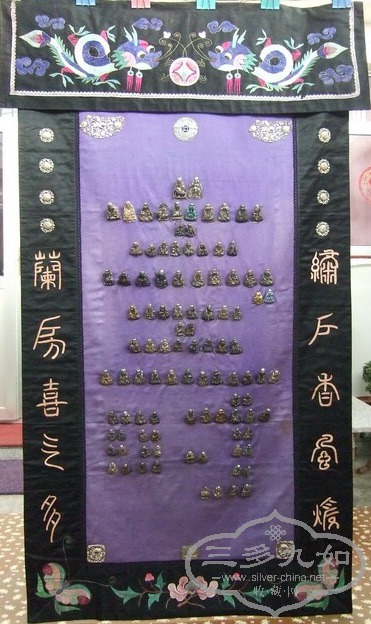 繡戶香風煖
蘭房喜气多
三多九如
www.silver-china.net